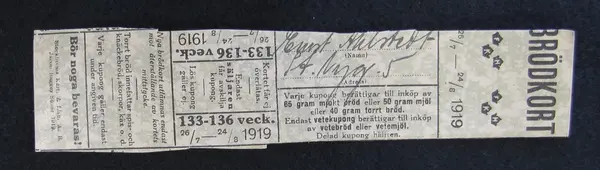 Bör noga bevaras!
Varje kupong gäller endast
under angiven tid.
Torrt bröd innefattar spis- och
knäckebröd, skorpor, käx o. d.
Nya brödkort utlämnas endast
mot återställande av kortets
mittstycke.
26/7 — 24/8 1919
133-136 veck.
Lös kupong
gäller.
Endast
säljaren
får avskilja
kupong.
Kortet får ej
överlåtas.
133-136 veck.
26/7 24/8 1919
Ernst Ahlstedt
(Namn)
5
(Adress)
Varje kupong berättigar till inköp av
65 gram mjukt bröd eller 50 gram mjöl
eller 40 gram torrt bröd.
Endast vetekupong berättigar till inköp av
vetebröd eller vetemjöl.
Delad kupong ogiltig.
26/7 — 24/8 1919
BRÖDKORT